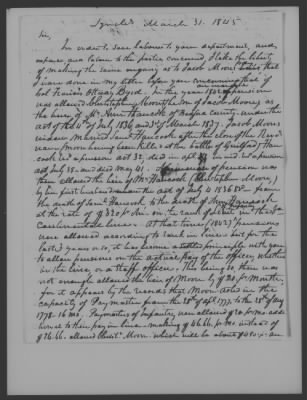 Lynchb. March 31. 1845
Sir,
In order to save labour to your department, and,
expense and labour to the parties concerned, I take the liberty
of making the same enquiry as to Jacob Moore's that
I have done in my letter before you concerning that of
Francis Otway Byrd. In the year 1842 a pension
was allowed Christopher Moore, the son of Jacob Moore, as
the heir of Mrs. Ann Hancock of Patrick county, under the
act of the 4th of July 1836 and 3d of March 1837. Jacob Moore's
widow married Saml. Hancock after the close of the Revo.
war, (Moore having been killed at the battle of Guilford) Han-
cock recd. a pension act 32, died in apl.
act July 38. and died May 41.
then allowed the heir of Mrs. Hancock (Christopher Moore)
by her first husband under the act of July 4 1836 - from
the death of Saml. Hancock to the death of Ann Hancock
at the rate of $320 pr. Ann. on, the rank of Lieut in the
Continental line. At that time (1842) pensions
were allowed according to rank in line; but for the
last 3 years or so, it has become a settled principle with you
to allow pensions on the actual pay of the officer, whether
in the line or a staff officer. This being so there was
not enough allowed the heir of Moore by $20 pr. Month,
for it appears by the records that Moore acted in the
capacity of Paymaster from the of apl. 1777. to the of Aug
1778. 16 mos. Paymasters of Infantry, were allowed $20 pr. mo. addi-
tional to their pay in line - making $46.66 pr. mo. instead of
$26.66. allowed Christr. Moore. which will be about $480 pr. an